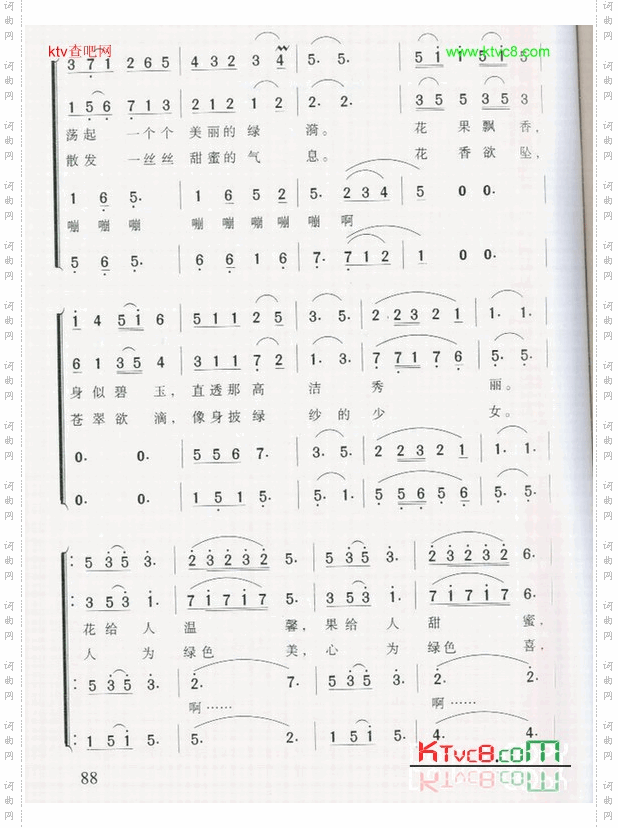 ktv查吧网
www.ktvc8.com
3 7 1 2 6 5 | 4 3 2 3 4 | 5. 5. | 5 i i 5 i 5
1 5 6 7 1 3 | 2 1 2 1 2 | 2. 2. | 3 5 5 3 5 3
荡起 一个个 美丽的绿 漪。 花果飘香,
散发 一丝丝 甜蜜的气 息。 花香欲坠,
1 6 5. | 1 6 5 2 | 5. 2 3 4 | 5 0 0.
嘣嘣嘣 嘣嘣嘣嘣嘣啊
5 6 5. | 6 6 1 6 | 7. 7 1 2 | 1 0 0.
i 4 5 i 6 | 5 1 1 2 5 | 3. 5. | 2 2 3 2 1 | 1. 1.
6 1 3 5 4 | 3 1 1 7 2 | 1. 3. | 7 7 1 7 6 | 5. 5.
身似碧玉,直透那高 洁 秀 丽。
苍翠欲滴,像身披绿 纱的少 女。
0. 0. | 5 5 6 7. | 3. 5. | 2 2 3 2 1 | 1. 1.
0. 0. | 1 5 1 5. | 5. 1. | 5 5 6 5 6 | 5. 5.
: 5 3 5 3. | 2 3 2 3 2 5. | 5 3 5 3. | 2 3 2 3 2 6.
: 3 5 3 1. | 7 i 7 i 7 5. | 3 5 3 i. | 7 i 7 i 7 6.
花给人 温 馨,果给人 甜 蜜,
人 为绿色 美,心 为绿色 喜,
: 5 3 5 3. | 2. 7. | 5 3 5 3. | 2. 2.
啊…… 啊……
: 1 5 i 5. | 5. 2. | 1 5 i 5. | 4. 4.
88
KTvc8.com
词曲网